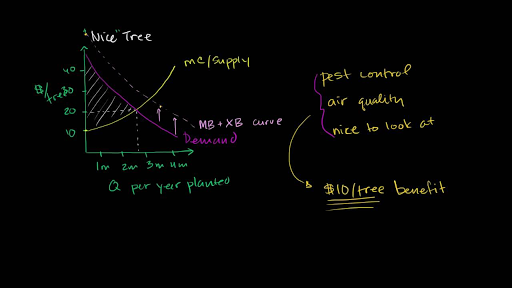 "Nice" Tree
$/tree
40
30
20
10
1m 2m 3m 4m
Q per year planted
MC/Supply
MB + XB curve
Demand
pest control
air quality
nice to look at
$10/tree benefit